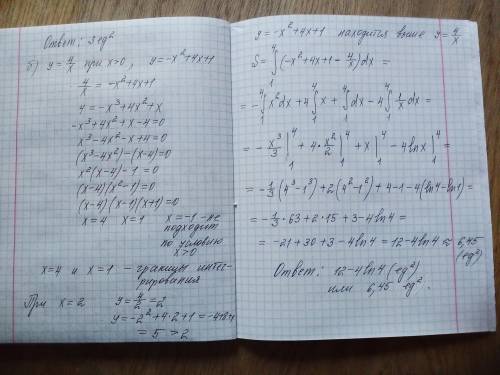 Ответ: 3 ед²
б) y = 4/x при x>0, y = -x² + 4x + 1
4/x = -x² + 4x + 1
4 = -x³ + 4x² + x
-x³ + 4x² + x - 4 = 0
x³ - 4x² - x + 4 = 0
(x³ - 4x²) - (x - 4) = 0
x²(x - 4) - 1 = 0
(x - 4)(x² - 1) = 0
(x - 4)(x - 1)(x + 1) = 0
x = 4 x = 1 x = -1 - не
подходит
по условию
x>0
x = 4 и x = 1 - границы интег-
рирования
При x = 2 y = 4/2 = 2
y = -2² + 4·2 + 1 = -4+8+1
= 5 > 2
y = -x² + 4x + 1 находится выше y = 4/x
S = ∫₁⁴ (-x² + 4x + 1 - 4/x) dx =
= -∫₁⁴ x² dx + 4∫₁⁴ x + ∫₁⁴ dx - 4∫₁⁴ 1/x dx =
= -x³/3 |₁⁴ + 4·x²/2 |₁⁴ + x |₁⁴ - 4 ln x |₁⁴ =
= -1/3 (4³ - 1³) + 2(4² - 1²) + 4 - 1 - 4(ln4 - ln1) =
= -1/3 · 63 + 2·15 + 3 - 4 ln4 =
= -21 + 30 + 3 - 4 ln4 = 12 - 4 ln4 ≈ 6,45
(ед²)
Ответ: 12 - 4 ln4 (ед²)
или 6,45 ед².